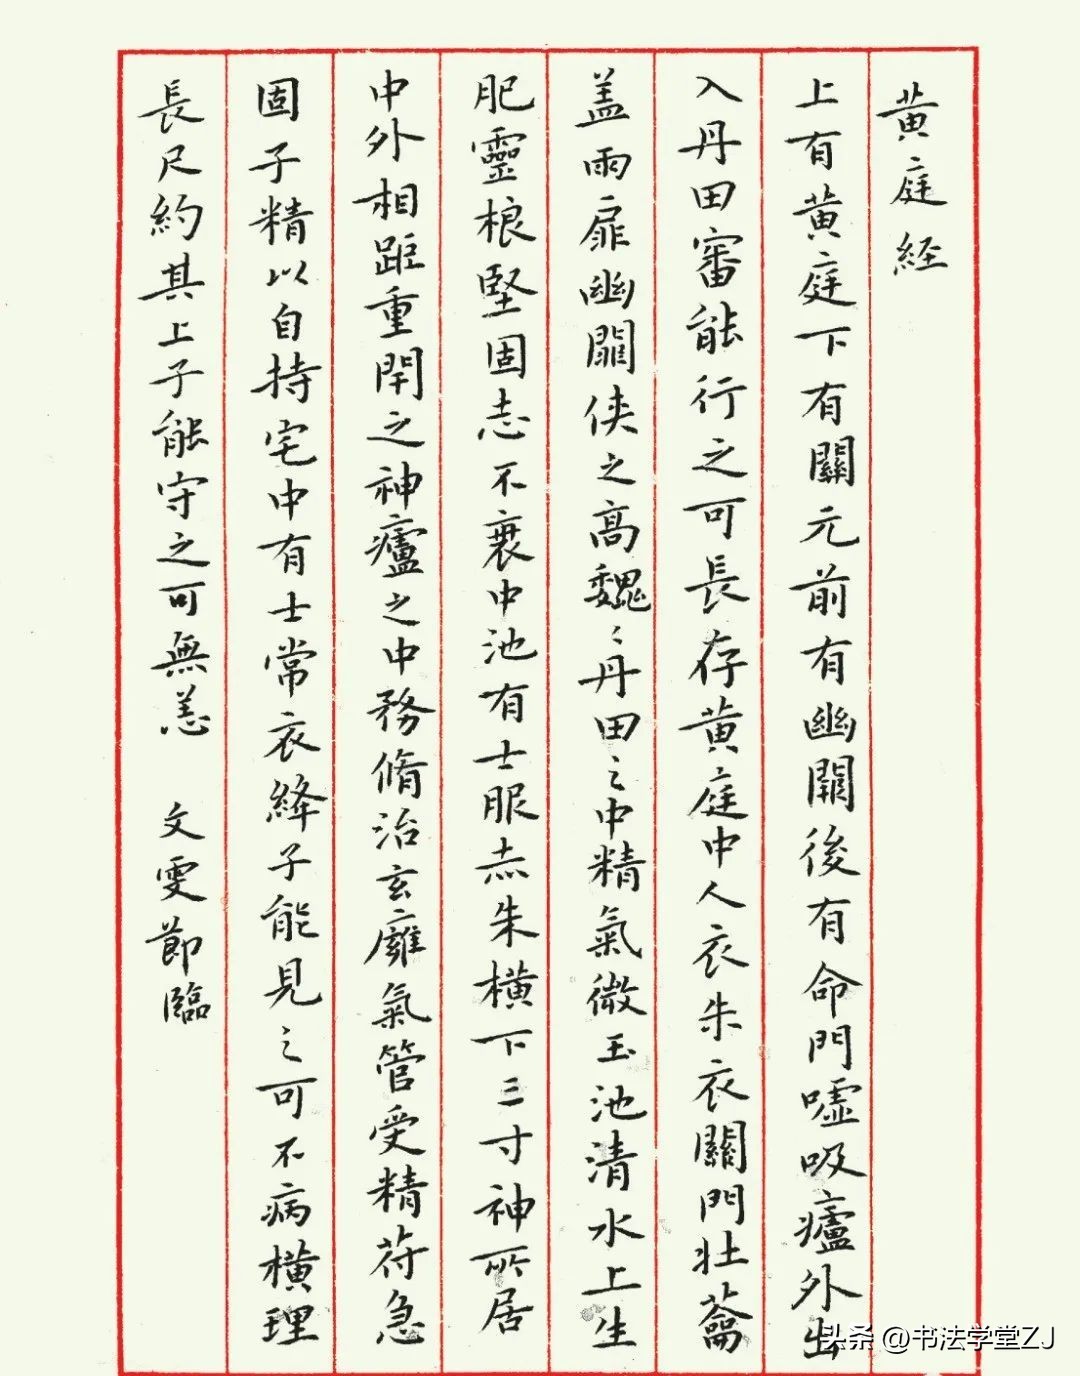 黄庭经
上有黄庭下有關元前有幽闕後有命門噓吸廬外出
入丹田審能行之可長存黄庭中人衣朱衣關門壮蘥
盖兩扉幽闕侠之高魏〻丹田之中精氣微玉池清水上生
肥靈根堅固志不衰中池有士服赤朱横下三寸神所居
中外相距重閇之神廬之中務脩治玄廱氣管受精苻急
固子精以自持宅中有士常衣絳子能見之可不病横理
長尺約其上子能守之可無恙 文雯節臨
头条 @书法学堂ZJ